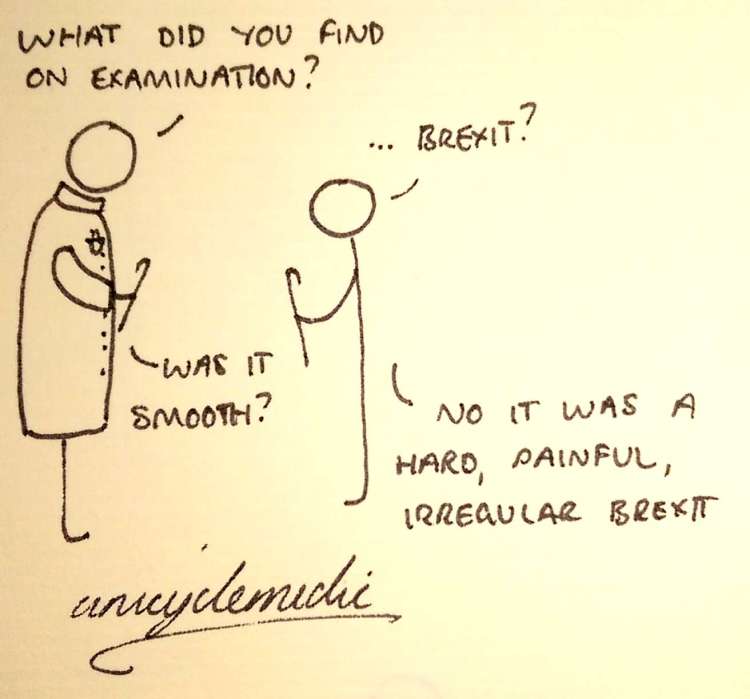 WHAT DID YOU FIND
ON EXAMINATION?
... BREXIT?
WAS IT
SMOOTH?
NO IT WAS A
HARD, PAINFUL,
IRREGULAR BREXIT
unicyclemedic